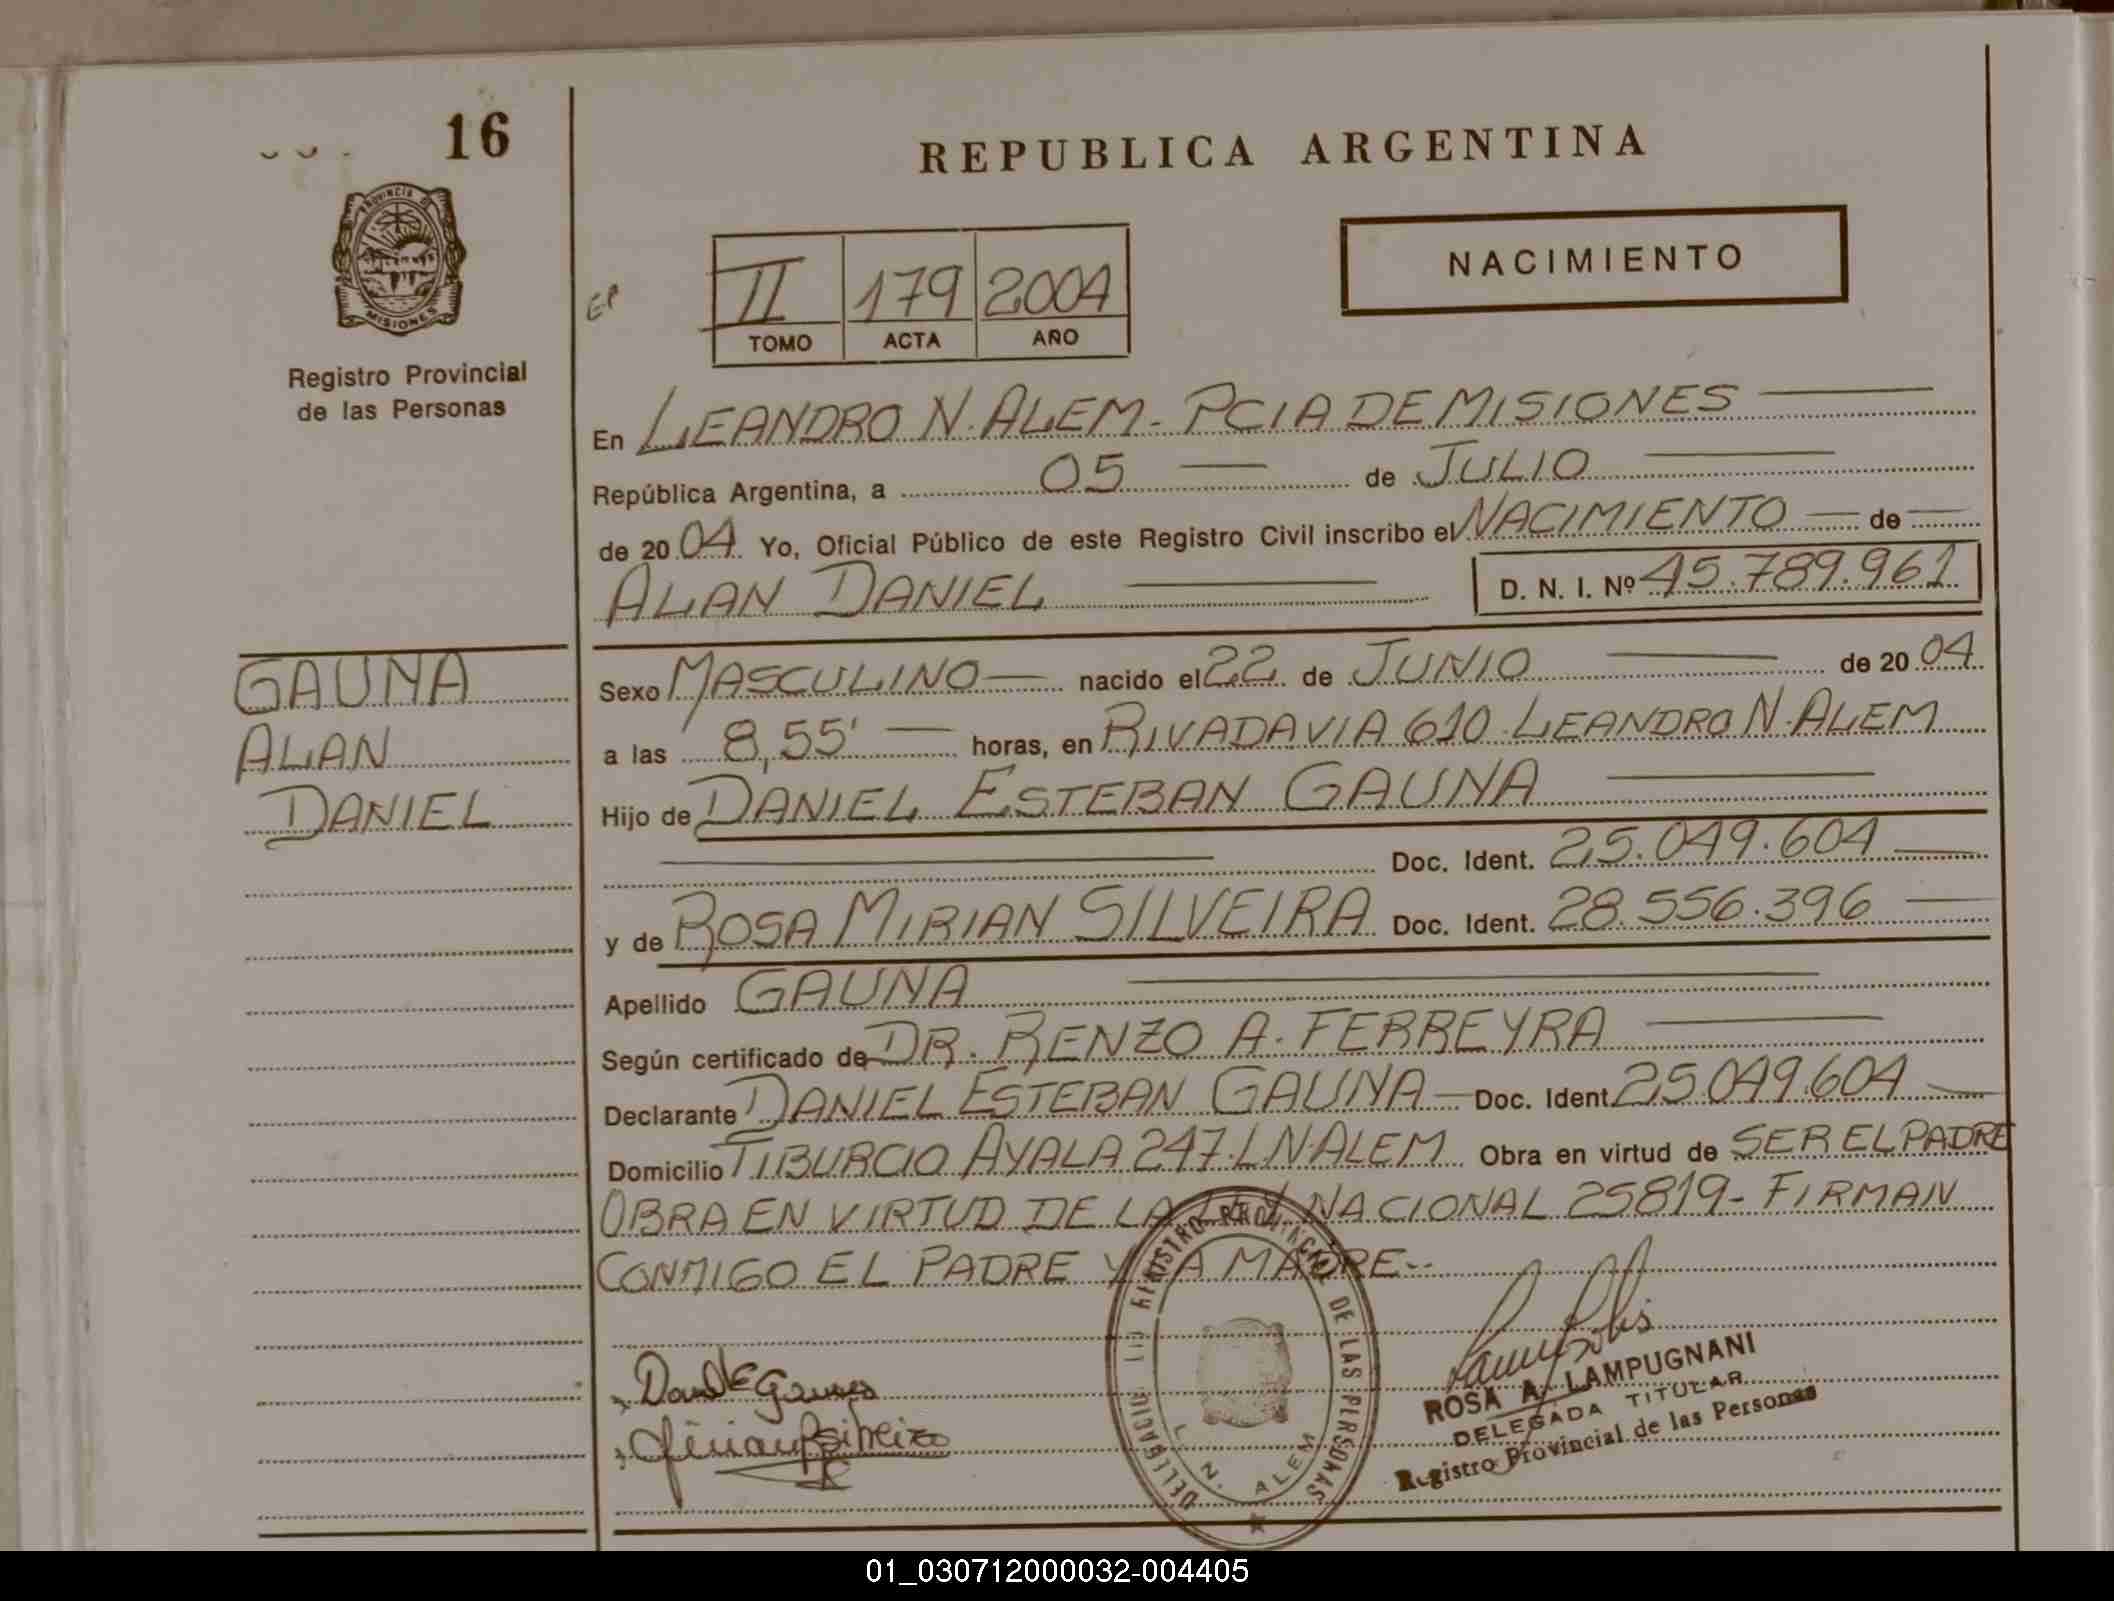 16
REPUBLICA ARGENTINA
PROVINCIA DE
MISIONES
Registro Provincial
de las Personas
II 179 2004
TOMO ACTA AÑO
NACIMIENTO
En LEANDRO N. ALEM - PCIA DE MISIONES
República Argentina, a 05 de JULIO
de 2004 Yo, Oficial Público de este Registro Civil inscribo el NACIMIENTO de
ALAN DANIEL D. N. I. Nº 45.789.961
GAUNA
ALAN
DANIEL
Sexo MASCULINO nacido el 22 de JUNIO de 2004
a las 8,55' horas, en RIVADAVIA 610 - LEANDRO N. ALEM
Hijo de DANIEL ESTEBAN GAUNA
Doc. Ident. 25.049.604
y de ROSA MIRIAN SILVEIRA Doc. Ident. 28.556.396
Apellido GAUNA
Según certificado de DR. RENZO A. FERREYRA
Declarante DANIEL ESTEBAN GAUNA Doc. Ident. 25.049.604
Domicilio TIBURCIO AYALA 247. L N. ALEM Obra en virtud de SER EL PADRE
OBRA EN VIRTUD DE LA LEY NACIONAL 25819 - FIRMAN
CONMIGO EL PADRE Y LA MADRE --
REGISTRO PROVINCIAL DE LAS PERSONAS
DELEGACION
L. N. ALEM
ROSA A. LAMPUGNANI
DELEGADA TITULAR
Registro Provincial de las Personas
01_030712000032-004405